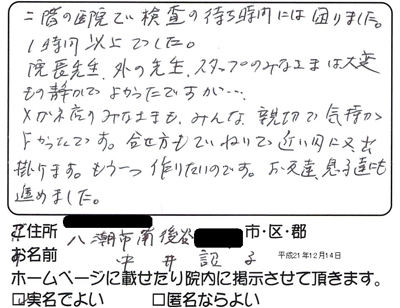 二階の医院で検査の待ち時間には困りました。
1時間以上でした。
院長先生、外の先生、スタッフのみなさまは大変
もの静かでよかったですが…、
メガネ店のみなさまも、みんな親切で気持が
よかったです。合せ方もていねいで近い内に又出
掛けます。もう一つ作りたいのです。お友達、息子達にも
進めました。
ご住所 八潮市南後谷 市・区・郡
お名前 中井 子 平成21年12月14日
ホームページに載せたり院内に掲示させて頂きます。
□実名でよい □匿名ならよい